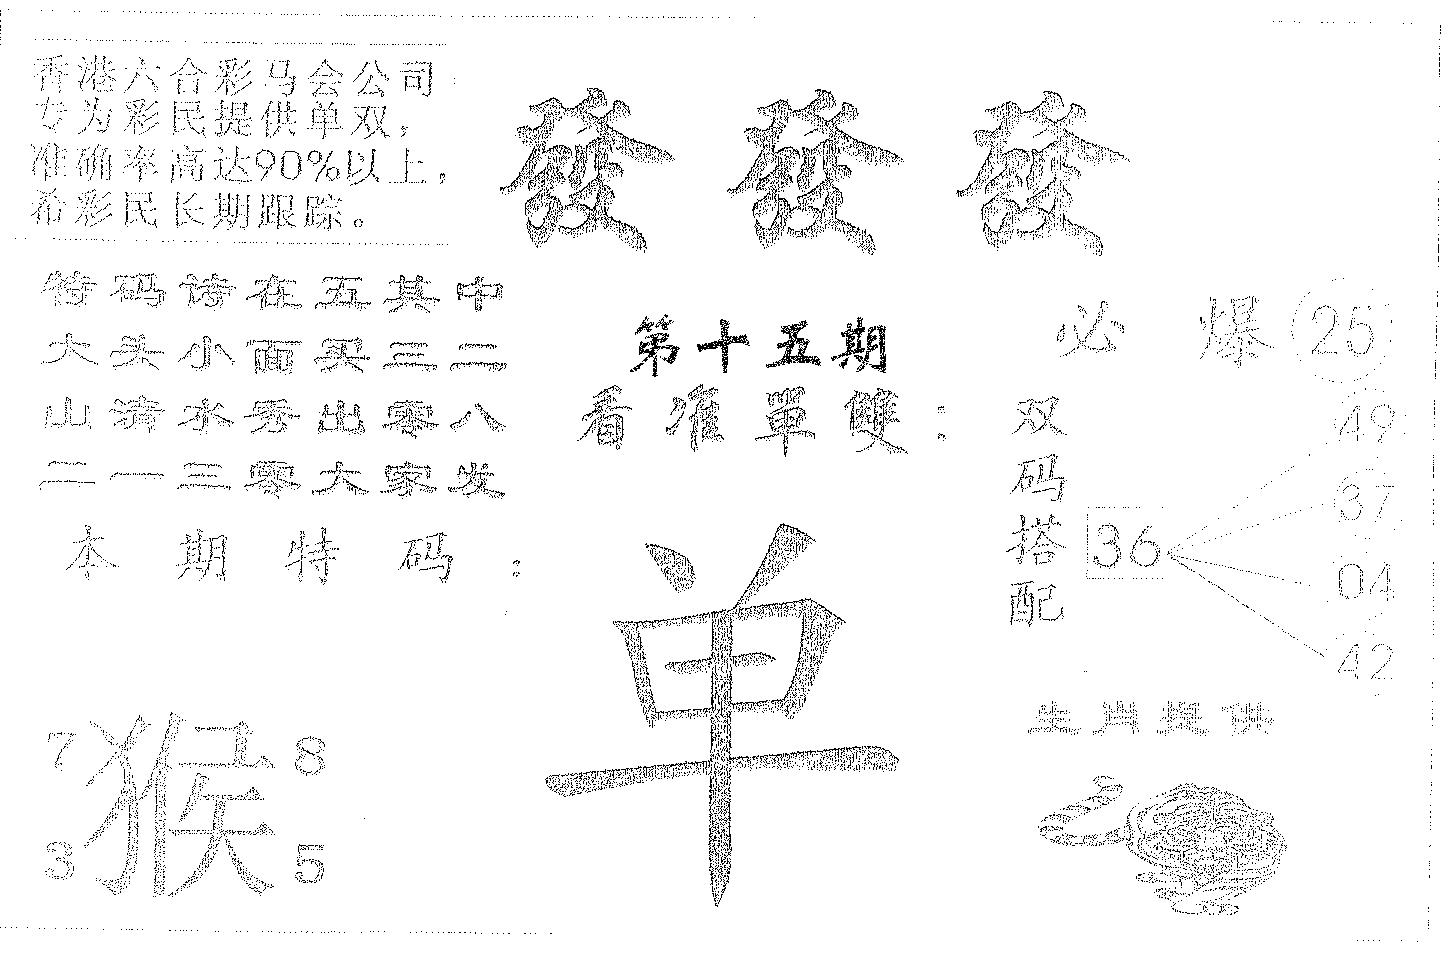 香港六合彩马会公司
专为彩民提供单双，
准确率高达90%以上，
希彩民长期跟踪。
發發發
特码诗在五其中
大头小面买三二
山清水秀出零八
二一三零大家发
本期特码：
7 猴 8
3 5
第十五期
看准單雙：
单
必爆25
双码搭配
36
49
37
04
42
生肖提供